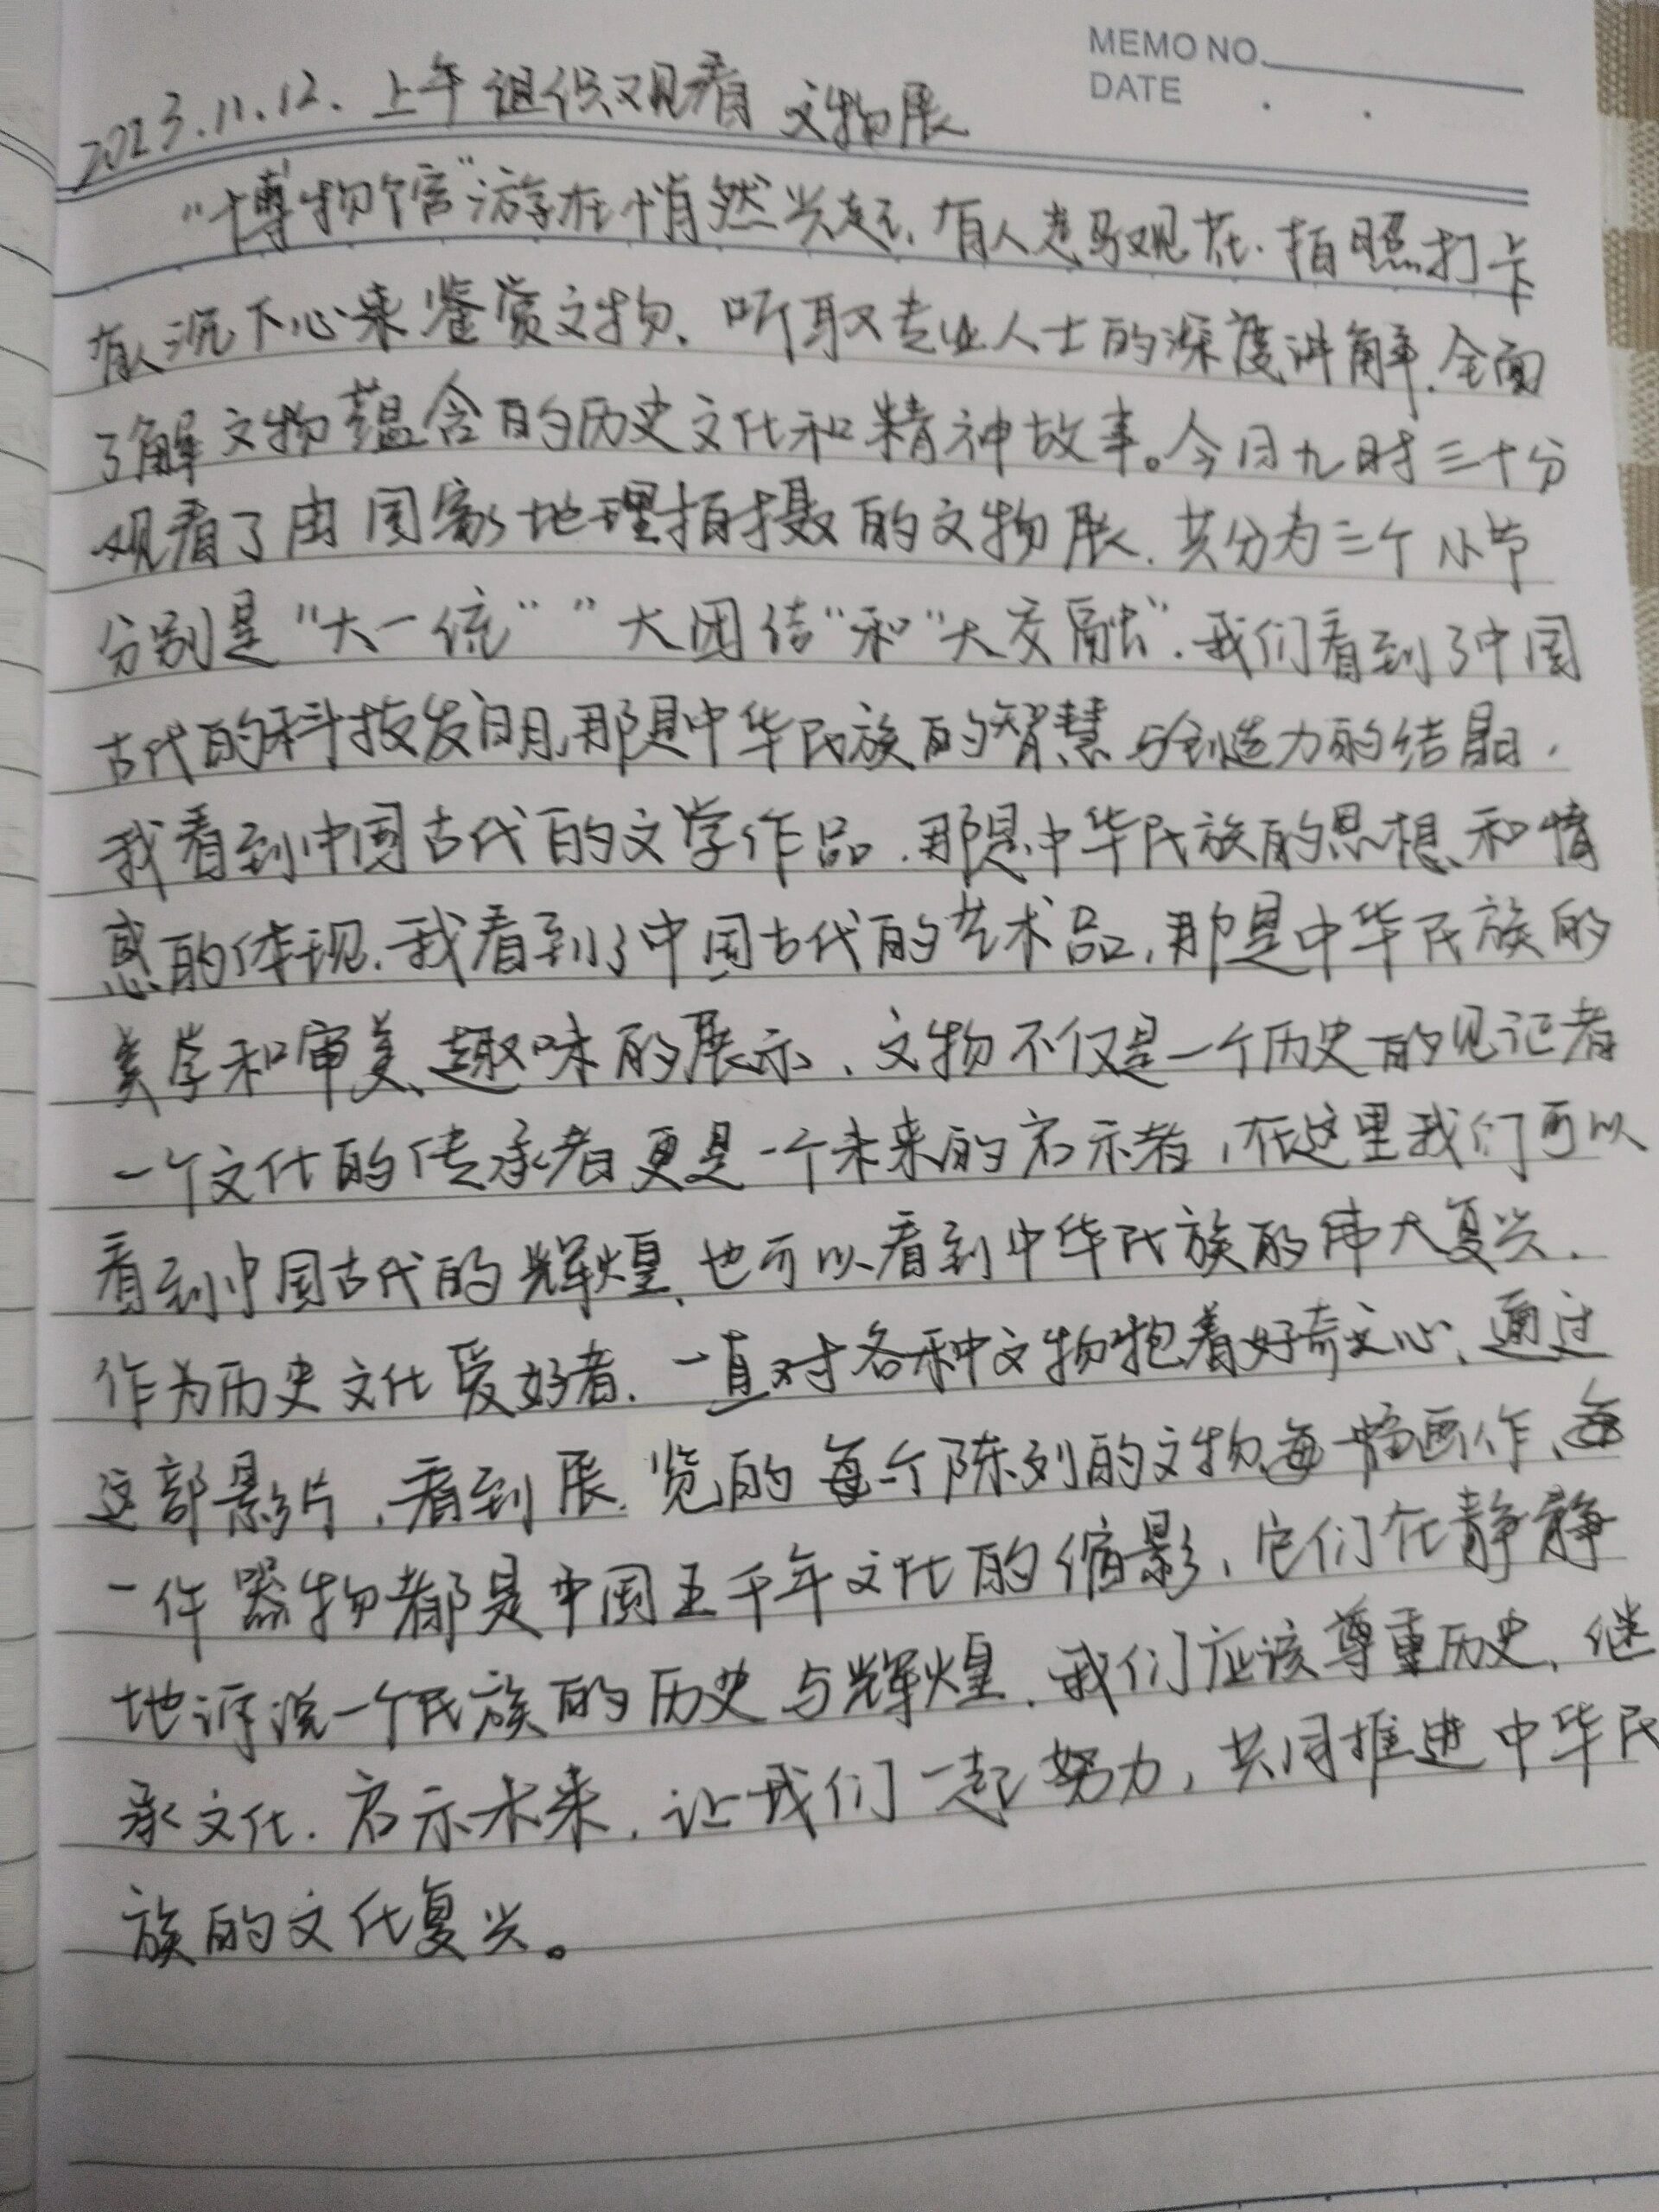 MEMO NO.
DATE
2023.11.12.上午组织观看 文物展
“博物馆”游在悄然兴起，有人走马观花.拍照打卡
有人沉下心来鉴赏文物、听取专业人士的深度讲解.全面
了解文物蕴含的历史文化和精神故事。今日九时三十分
观看了由国家地理拍摄的文物展.共分为三个小节
分别是“大一统”“大团结”和“大交融”.我们看到了中国
古代的科技发明,那是中华民族的智慧与创造力的结晶.
我看到中国古代的文学作品.那是中华民族的思想和情
感的体现.我看到了中国古代的艺术品,那是中华民族的
美学和审美、趣味的展示.文物不仅是一个历史的见证者
一个文化的传承者更是一个未来的启示者,在这里我们可以
看到中国古代的辉煌、也可以看到中华民族的伟大复兴.
作为历史文化爱好者.一直对各种文物抱着好奇之心、通过
这部影片,看到展.览的每个陈列的文物、每一幅画作、每
一件器物都是中国五千年文化的缩影、它们在静静
地诉说一个民族的历史与辉煌.我们应该尊重历史、继
承文化.启示未来.让我们一起努力,共同推进中华民
族的文化复兴。